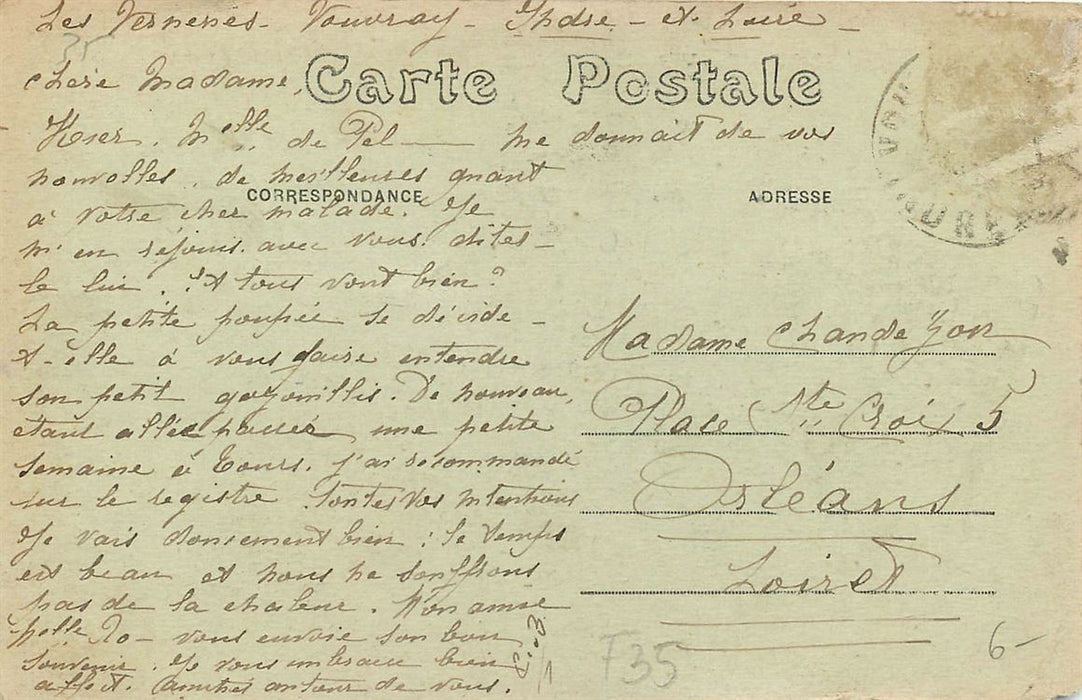 Les Vernenes - Vouvray - Indre - et Loire -
35
Chère Madame,
Carte Postale
Hier. Melle de Pel—— me donnait de vos
nouvelles, de meilleures quant
CORRESPONDANCE
ADRESSE
à votre cher malade. Je
m'en réjouis avec vous dites-
le lui. Et tous vont bien?
La petite poupée se décide-
t-elle à vous faire entendre
son petit gazouillis. De nouveau,
étant allée passer une petite
semaine à Tours, j'ai recommandé
sur le registre toutes vos intentions
Je vais doucement bien ; le temps
est beau et nous ne souffrons
pas de la chaleur. Mon amie
Melle Ro- vous envoie son bon
souvenir. Je vous embrasse bien
affect. Amitiés autour de vous.
Madame Chande Yon
Place Ste Croix 5
Orléans
Loiret
F35
6-